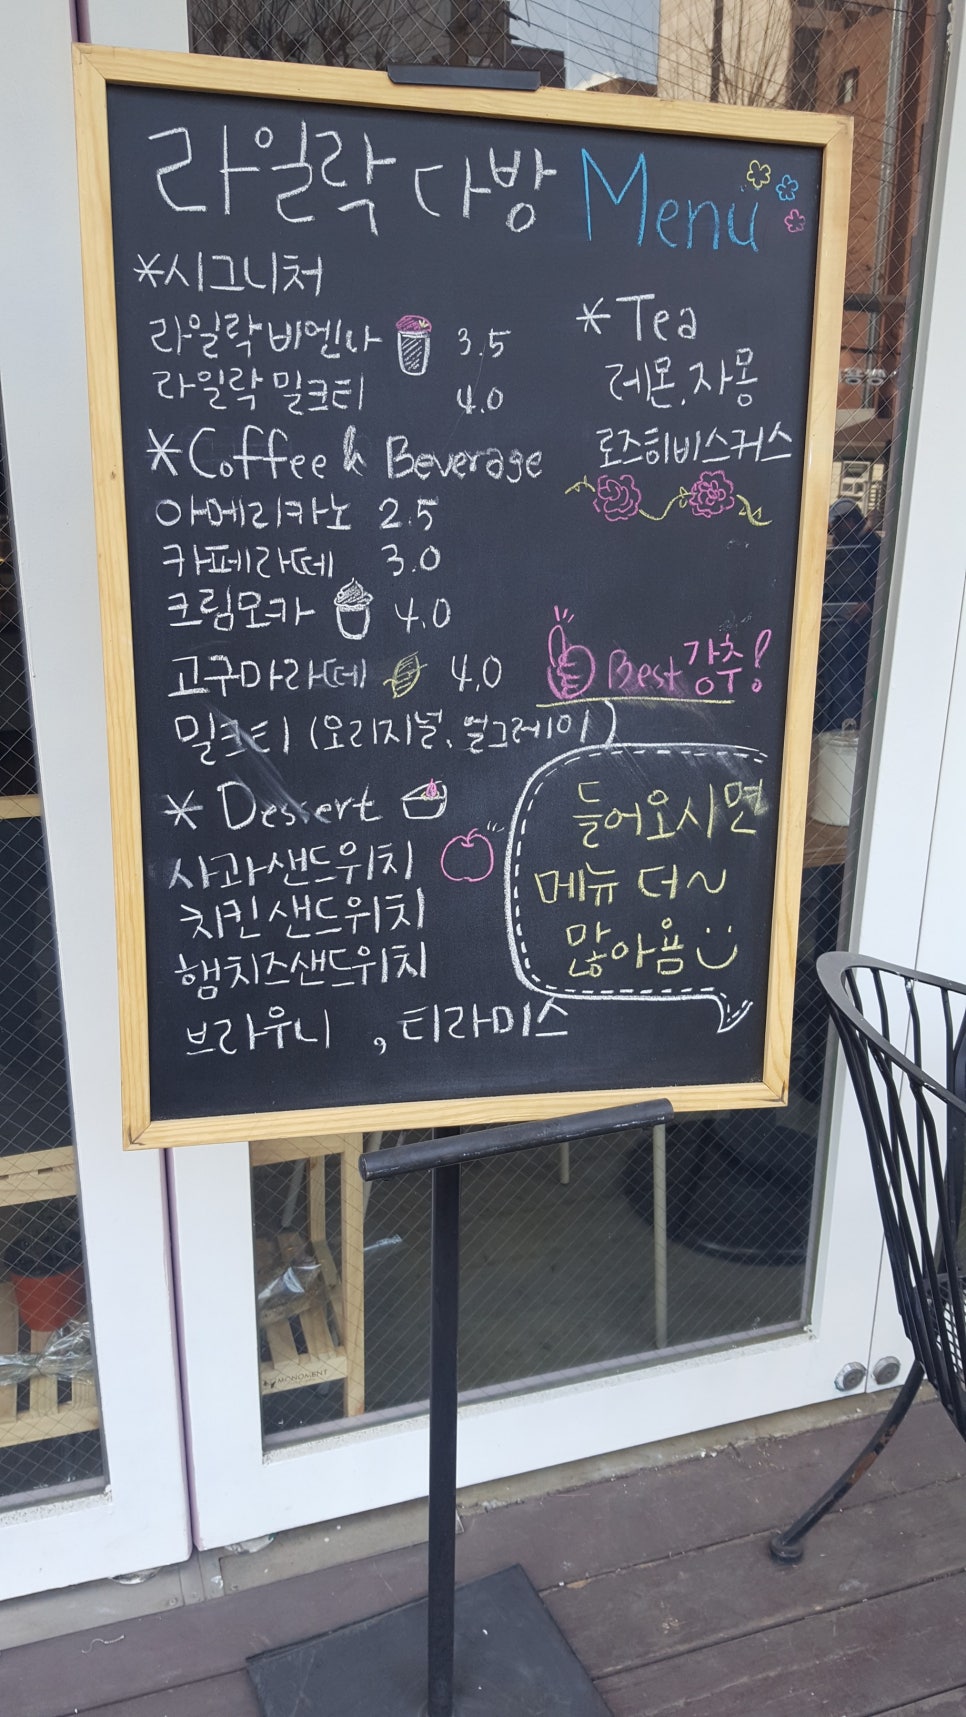 라일락 다방 Menu
*시그니처
라일락 비엔나 3.5
라일락 밀크티 4.0
*Coffee & Beverage
아메리카노 2.5
카페라떼 3.0
크림모카 4.0
고구마라떼 4.0
밀크티 (오리지널, 얼그레이)
* Dessert
사과샌드위치
치킨샌드위치
햄치즈샌드위치
브라우니 , 티라미스
*Tea
레몬, 자몽
로즈히비스커스
Best 강추!
들어오시면
메뉴 더~
많아욤
MONOMENT